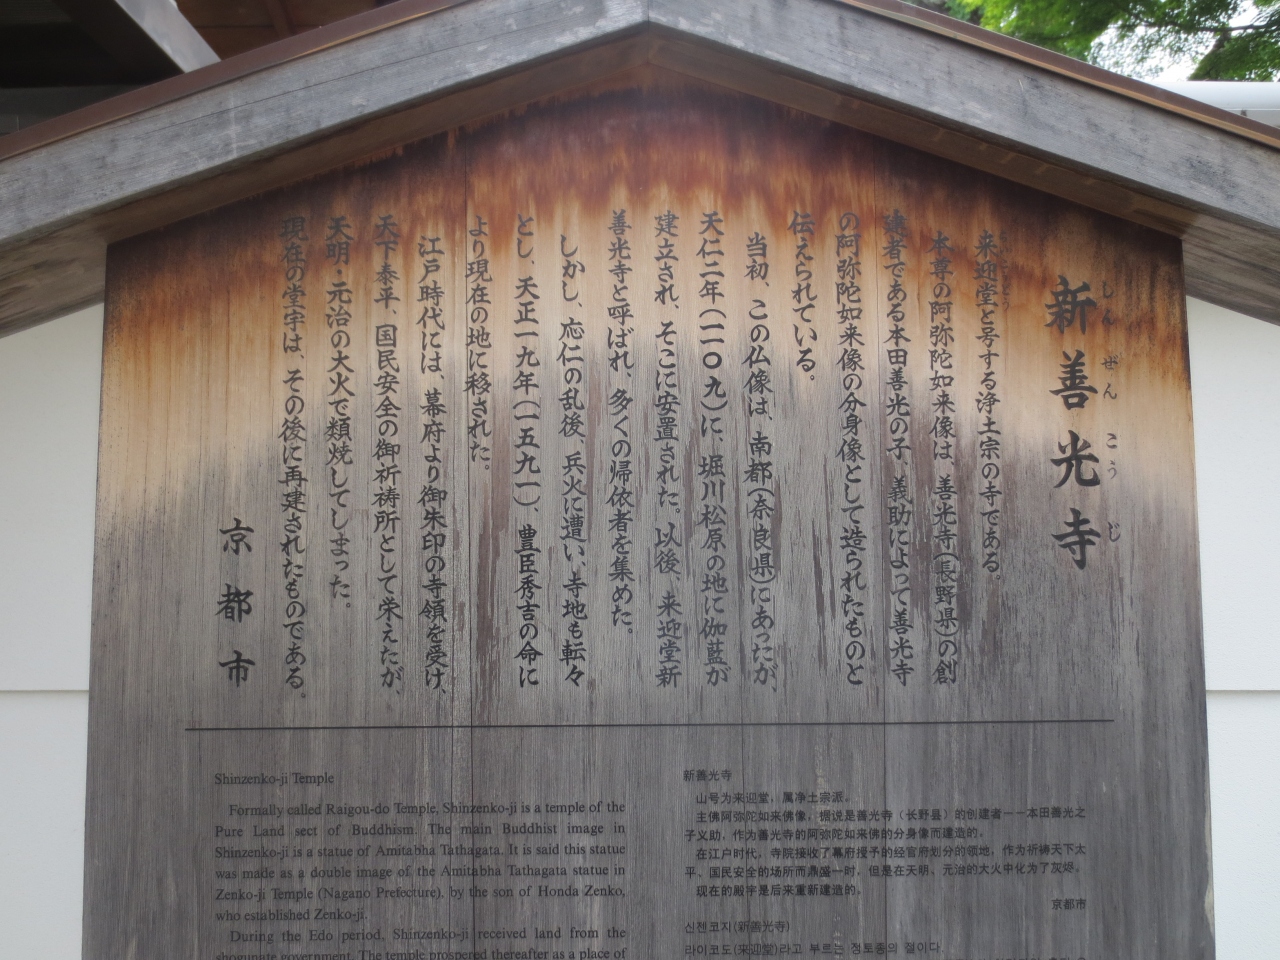 新善光寺
しんぜんこうじ
来迎堂と号する浄土宗の寺である。
本尊の阿弥陀如来像は、善光寺(長野県)の創
建者である本田善光の子、義助によって善光寺
の阿弥陀如来像の分身像として造られたものと
伝えられている。
当初、この仏像は、南都(奈良県)にあったが、
天仁二年(一一〇九)に、堀川松原の地に伽藍が
建立され、そこに安置された。以後、来迎堂新
善光寺と呼ばれ、多くの帰依者を集めた。
しかし、応仁の乱後、兵火に遭い、寺地も転々
とし、天正一九年(一五九一)、豊臣秀吉の命に
より現在の地に移された。
江戸時代には、幕府より御朱印の寺領を受け、
天下泰平、国民安全の御祈祷所として栄えたが、
天明・元治の大火で類焼してしまった。
現在の堂宇は、その後に再建されたものである。
京都市
Shinzenko-ji Temple
Formally called Raigou-do Temple, Shinzenko-ji is a temple of the
Pure Land sect of Buddhism. The main Buddhist image in
Shinzenko-ji is a statue of Amitabha Tathagata. It is said this statue
was made as a double image of the Amitabha Tathagata statue in
Zenko-ji Temple (Nagano Prefecture), by the son of Honda Zenko,
who established Zenko-ji.
During the Edo period, Shinzenko-ji received land from the
shogunate government. The temple prospered thereafter as a place of
新善光寺
山号为来迎堂，属净土宗派。
主佛阿弥陀如来佛像，据说是善光寺（长野县）的创建者－－本田善光之
子义助，作为善光寺的阿弥陀如来佛的分身像而建造的。
在江户时代，寺院接收了幕府授予的经官府划分的领地，作为祈祷天下太
平、国民安全的场所而鼎盛一时，但是在天明、元治的大火中化为了灰烬。
现在的殿宇是后来重新建造的。
京都市
신젠코지(新善光寺)
라이코도(来迎堂)라고 부르는 정토종의 절이다.